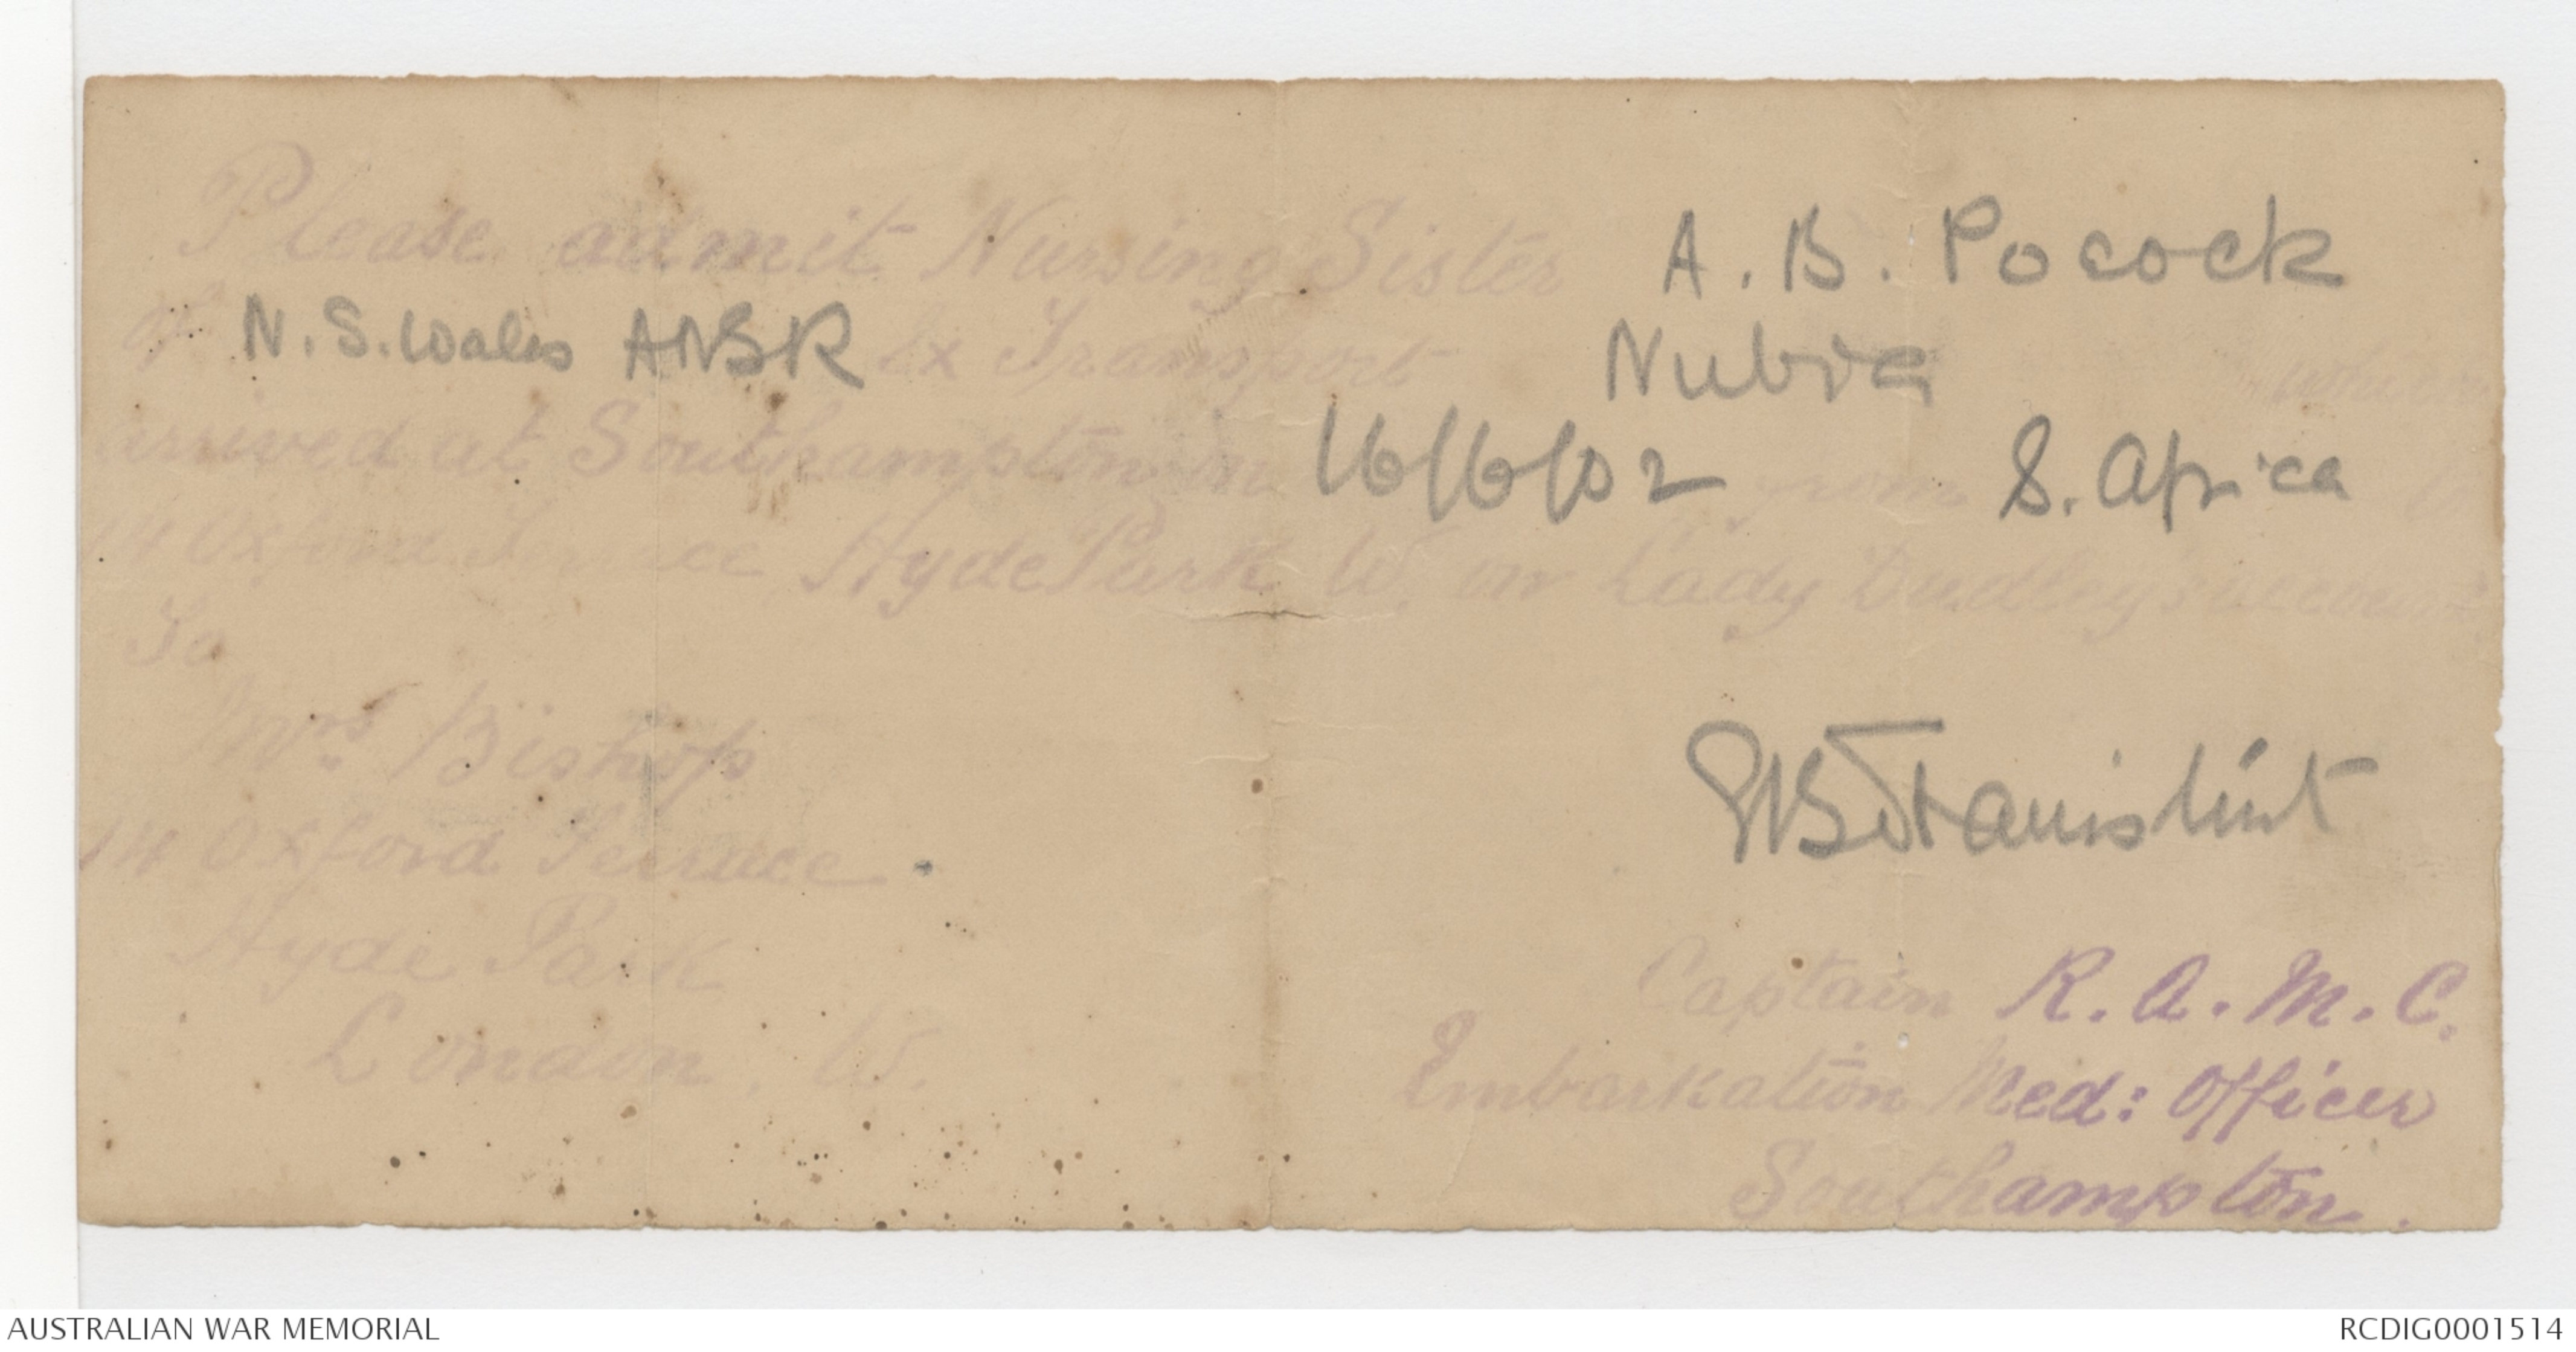 Please admit Nursing Sister A. B. Pocock
of N. S. Wales ANSR Ex Transport Nubia who
arrived at Southampton on 16/6/02 from S. Africa
14 Oxford Terrace Hyde Park W. on Lady Dudley's account
To
Mrs Bishop
14 Oxford Terrace
Hyde Park
London. W.
Captain R. A. M. C.
Embarkation Med: Officer
Southampton.
AUSTRALIAN WAR MEMORIAL
RCDIG0001514